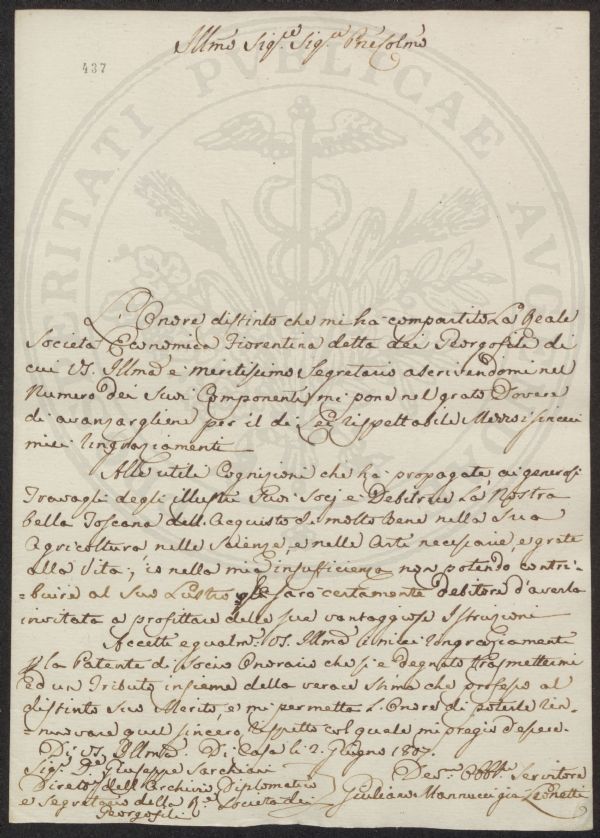 Illmo Sig.re Sig.re Pne Colmo
437
L'Onore distinto che mi ha compartito La Reale
Società Economica Fiorentina detta dei Georgofili di
cui VS. Illma è meritissimo Segretario ascrivendomi nel
Numero dei Suoi Componenti, mi pone nel grato Dovere
di avanzargliene per il di Lei rispettabile Mezzo i sinceri
miei ringraziamenti
Alle utili Cognizioni che ha propagate ai generosi
Travagli degli illustri Suoi Socj è Debitrice La Nostra
bella Toscana dell'Acquisto di molto Bene nella Sua
Agricoltura nelle Scienze, e nelle Arti necessarie, e grate
alla Vita; io nella mia insufficienza non potendo contri-
-buire al Suo Lustro gli sarò certamente debitore d'averla
invitata a profittare delle sue vantaggiose Istruzioni
Accetti egualm. VS. Illma i miei ringraziamenti
p la Patente di Socio Onorario che si è degnato trasmettermi
Ed un Tributo insieme della verace stima che professo al
distinto Suo Merito, e mi permetta l'Onore di poterle rin-
-nuovare quel sincero rispetto col quale mi pregio d'essere
Di VS. Illma Di Casa li 2. Giugno 1807.
Sig.r D.re Giuseppe Sarchiani
Diret.re dell'Archivio Diplomatico
e Segretario della R.le Società dei
Georgofili
Dev.mo Obb.mo Servitore
Giuliano Mannucci già Lionetti
VERITATI PVBLICAE